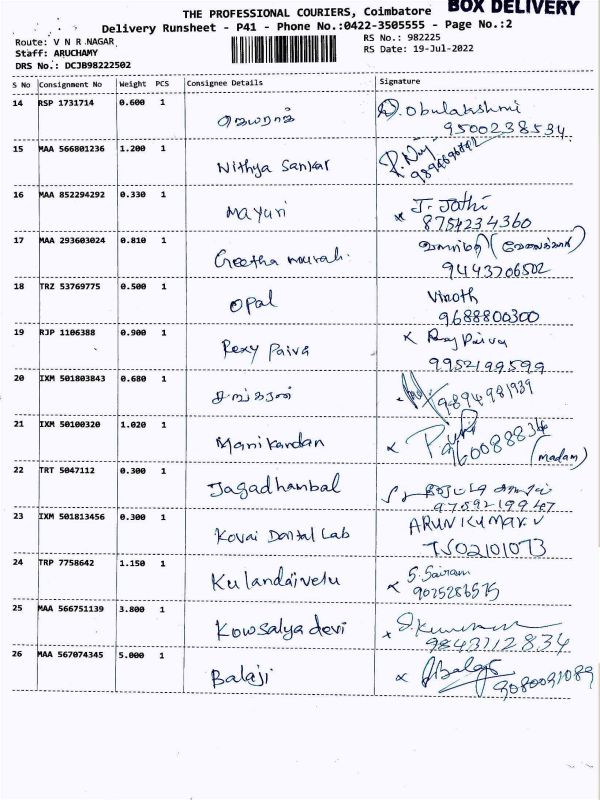 THE PROFESSIONAL COURIERS, Coimbatore BOX DELIVERY
Delivery Runsheet - P41 - Phone No.:0422-3505555 - Page No.:2
Route: V N R NAGAR RS No.: 982225
Staff: ARUCHAMY RS Date: 19-Jul-2022
DRS No.: DCJB98222502
S No Consignment No Weight PCS Consignee Details Signature
14 RSP 1731714 0.600 1 ஜெயராஜ் D. Obulakshmi
9500238534
15 MAA 566801236 1.200 1 Nithya Sankar
16 MAA 852294292 0.330 1 Mayuri x J. Jothi
8754234360
17 MAA 293603024 0.810 1 Geetha murali
9443706502
18 TRZ 53769775 0.500 1 Opal Vinoth
9688800300
19 RJP 1106388 0.900 1 Rexy Paiva x
9952199599
20 IXM 501803843 0.680 1 சங்கரன் 9894981939
21 IXM 50100320 1.020 1 Manikandan x
(madam)
22 TRT 5047112 0.300 1 Jagadhambal
23 IXM 501813456 0.300 1 Kovai Dental Lab ARUNKUMAR.V
TJ02101073
24 TRP 7758642 1.150 1 Kulandaivelu x S. Sairam
9025286575
25 MAA 566751139 3.800 1 Kowsalya devi x
9843112834
26 MAA 567074345 5.000 1 Balaji x Balaji
9080091089